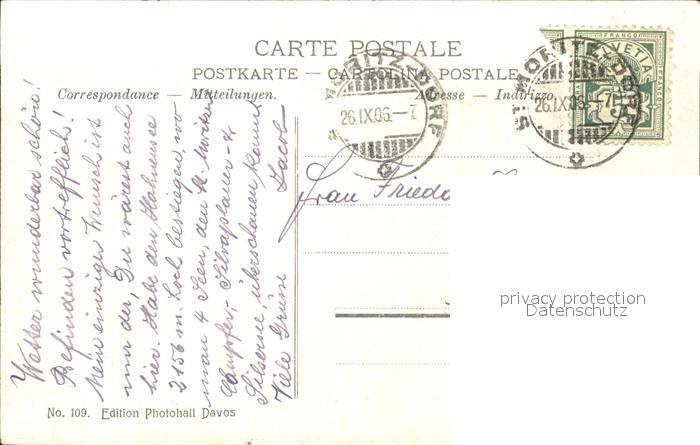 CARTE POSTALE
POSTKARTE — CARTOLINA POSTALE
Correspondance — Mitteilungen.
Adresse — Indirizzo.
ST. MORITZ-DORF
26.IX.06.–7
ST. MORITZ-DORF
26.IX.06.–7
FRANCO
HELVETIA
Wetter wunderbar schön!
Befinden vortrefflich!
Mein einziger Wunsch ist
nur der, Du wärest auch
hier. Habe den Hahnensee
2156 m. hoch bestiegen, wo
man 4 Seen, den St. Moritzer
Campfer,- Silvaplaner- u.
Silsersee, überschauen kann.
Viele Grüsse Jacob
Frau Frieda
privacy protection
Datenschutz
No. 109. Edition Photohall Davos